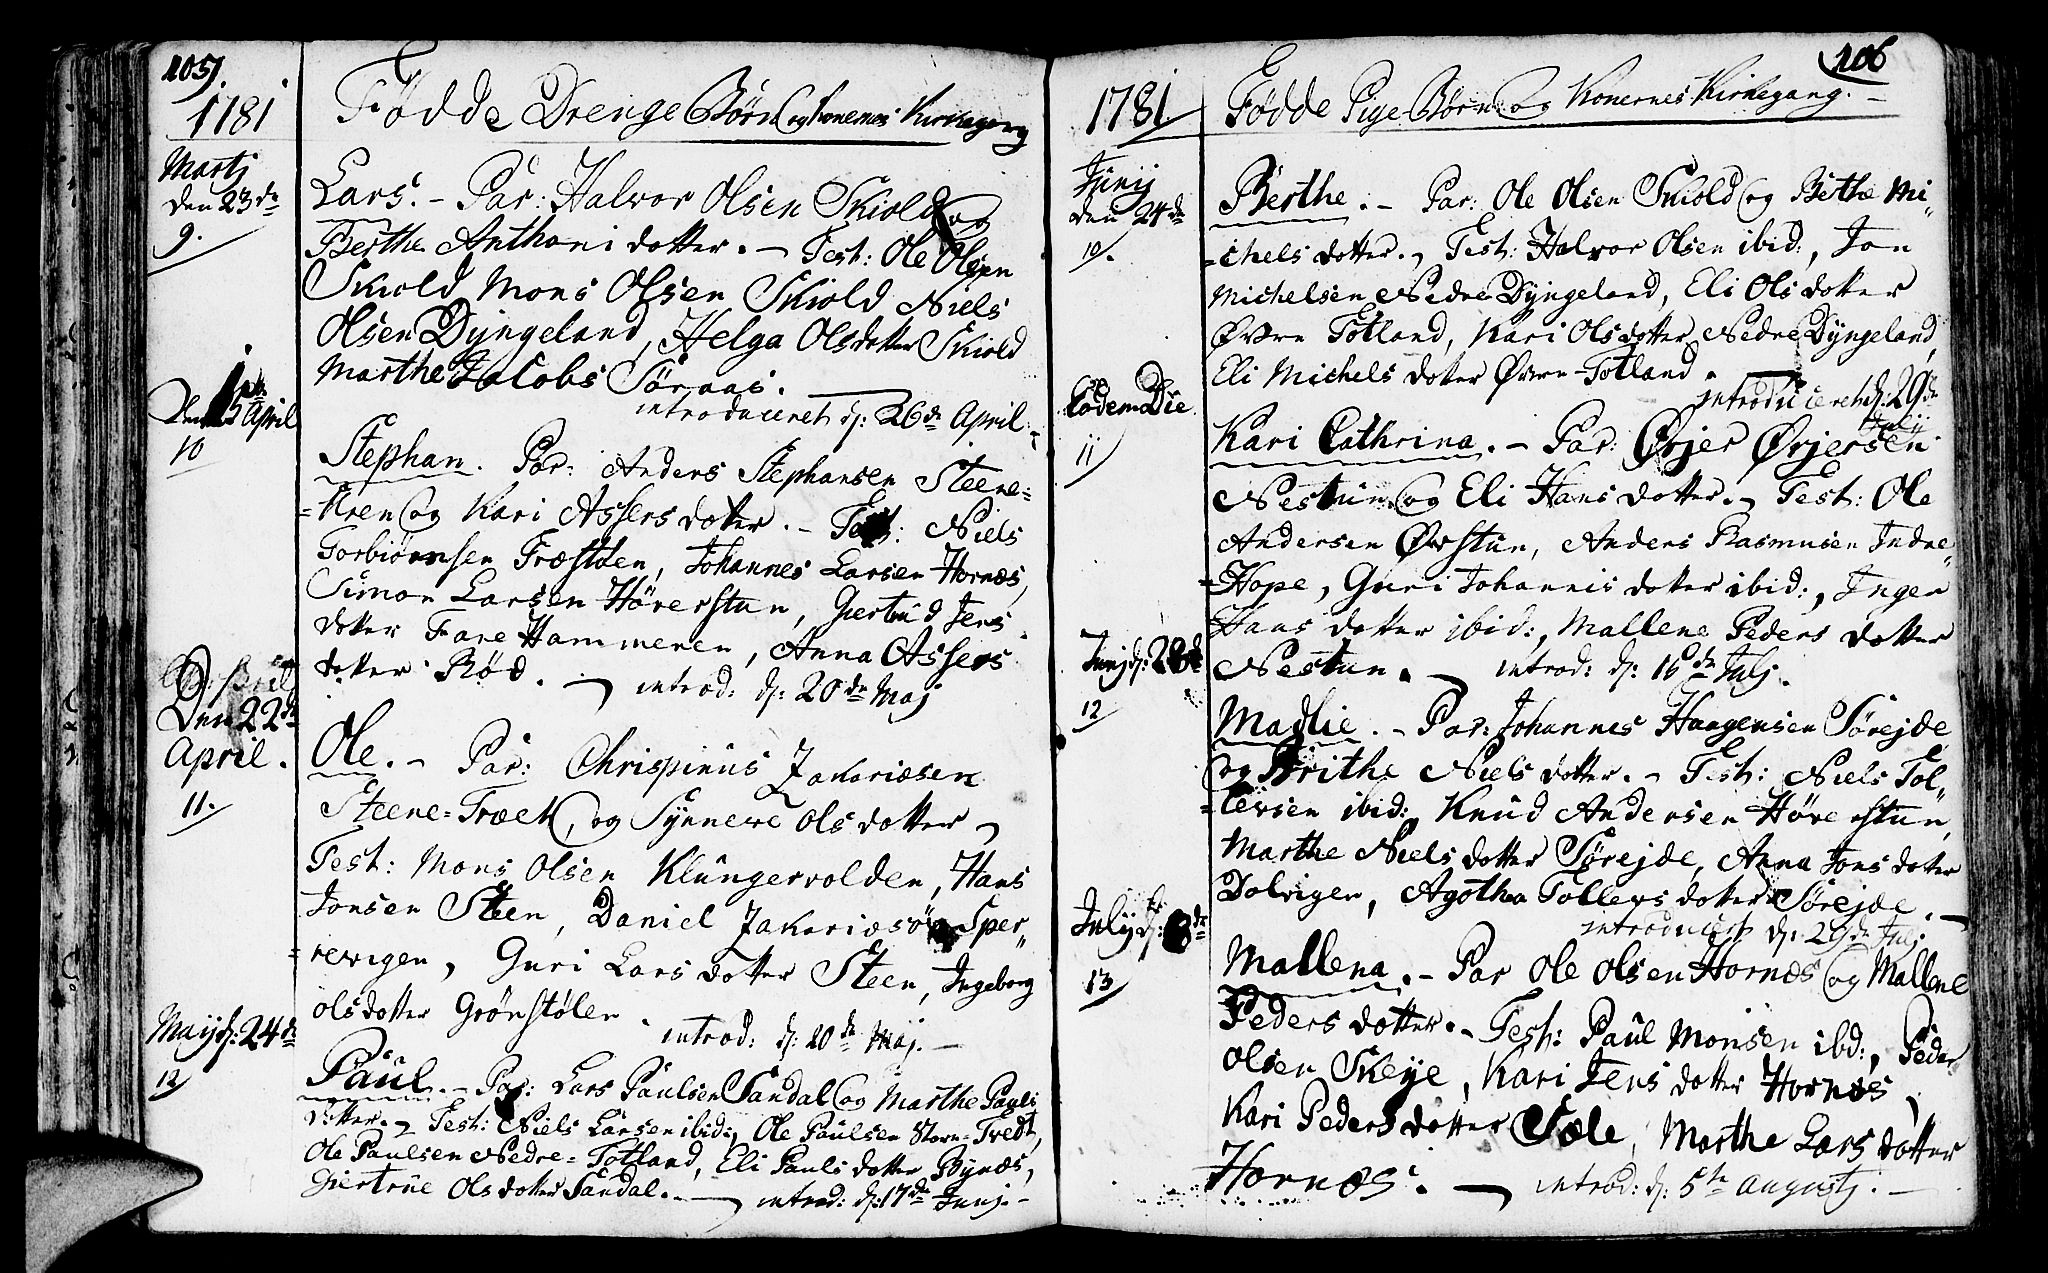 105
1781
Födde Drenge Börn og Konernes Kirkegang
Martj
den 23de
9.
Lars. - Par: Halvor Olsen Skiold og
Berthe Anthoni dotter. - Test: Ole Olsen
Skiold Mons Olsen Skiold Niels
Olsen Dyngeland, Helga Olsdotter Skiold
Marthe Jacobs Söraas.
introduceret d: 26de April
April
10
Stephan. Par: Anders Stephansen Steene=
=Kren og Kari Assers dotter. - Test: Niels
Torbiörnsen Træstöen, Johannes Larsen Hornæs,
Simon Larsen Hörerstun, Giertrud Jens
dotter Fane Hammeren, Anna Assers
dotter Röd.
introd: d: 20de Maj
Den 22de
April.
11.
Ole. - Par: Chrispinus Zakariæsen
Steene=Træet, og Synneve Olsdotter
Test: Mons Olsen Klüngervolden, Hans
Jonsen Steen, Daniel Zakariæsön Sper"
=revigen, Guri Lars dotter Steen, Ingeborg
olsdotter Grönstölen.
introd: d: 20de Maj.
Maij d: 24de
12
Paül. - Par: Lars Paulsen Sandal og Marthe Pauls
dotter. Test: Niels Larsen ibid:, Ole Paülsen Store=Tvedt,
Ole Paulsen Nedre=Totland, Eli Pauls dotter Bynæs,
Giertrüe Olsdotter Sandal.
introd: d: 17de Junj.
106
1781.
Födde Pige Börn og Konernes Kirkegang.
Junij
den 24de
10.
Berthe. - Par: Ole Olsen Skiold og Berthe Mi"
=chels dotter. Test: Halvor Olsen ibid:, Jon
Michelsen Nedre Dyngeland, Eli Ols dotter
Övre Totland, Kari Olsdotter Nedre Dyngeland,
Eli Michels dotter Övre-Totland.
introduceret d: 29de
Julij
Eodem Die
11
Kari Cathrina. - Par: Örjer Örjersen
Nestun og Eli Hans dotter. Test: Ole
Andersen Övstun, Anders Rasmusen Indre"
=Hope, Guri Johannis dotter ibid:, Inger
Hans dotter ibid:, Mallene Peders dotter
Nestun.
introd: d: 15de Julj.
Junj d:
12
Madlie. - Par: Johannes Haagensen Sörejde
og Brithe Niels dotter. - Test: Niels Tol"
=levsen ibid: Knud Andersen Hörerstun,
Marthe Niels dotter Sörejde, Anna Jons dotter
Dolvigen, Agotha Tollevs dotter Sörejde.
introducert d: 29de Julj
July d: 8de
13
Mallena. - Par Ole Olsen Hornæs og Mallene
Peders dotter. - Test: Paül Monsen ibd:, Peder
Olsen Skeije, Kari Jens dotter Hornæs,
Kari Peders dotter Sæle, Marthe Lars dotter
Hornæs.
introd: d: 5te Augustj.